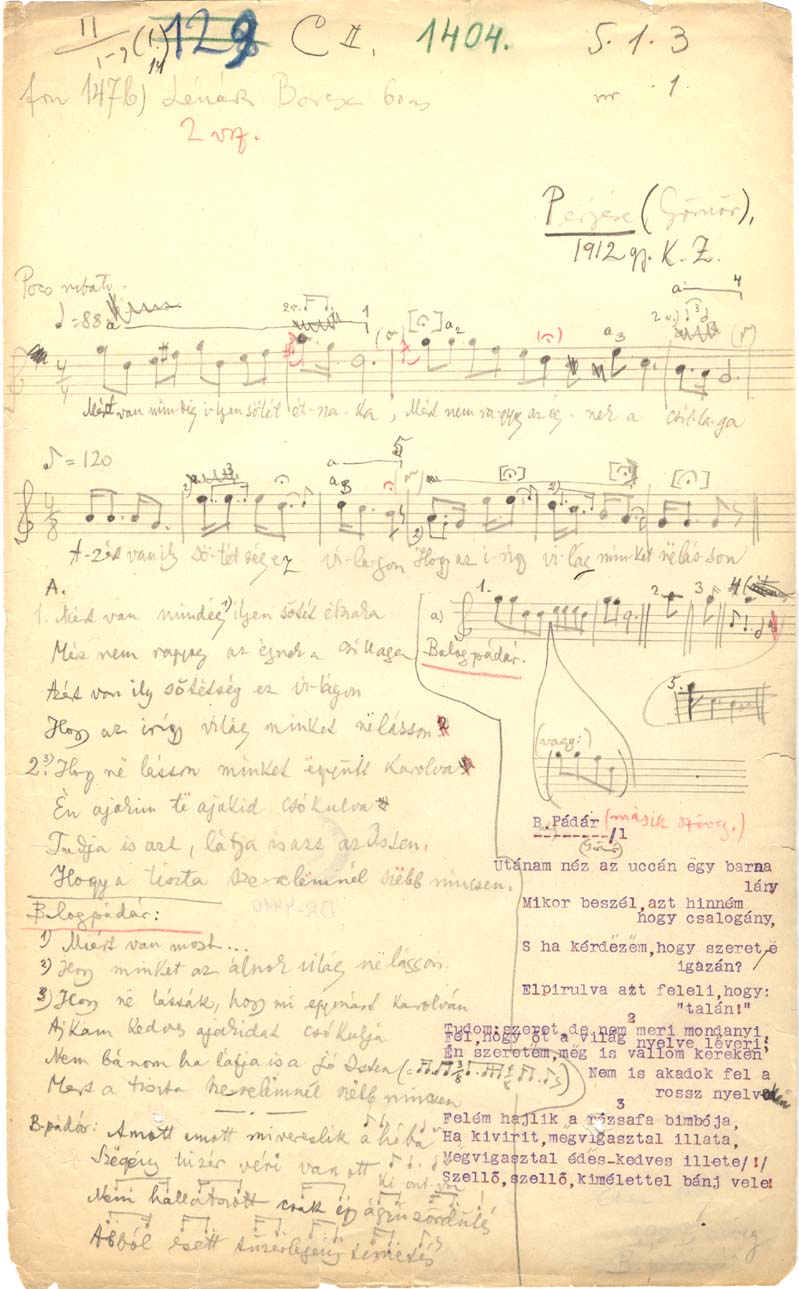 II 1-9 (1) 14 129 C II. 1404. 5.1.3
fon 147b) Lénárt Borcsa 60 as nr. 1.
2 vsz.
Perjése (Gömör),
1912 gy. K. Z.
Poco rubato.
♩=88
Mért van min-dig i-lyen sötét ét-sza-ka, Mért nem ra-gyog az ég-nek a csil-la-ga
♪=120
A-zért van ily sö-tét-ség ez vi-lá-gon Hogy az i-rigy vi-lág min-ket në lás-son
A.
1. Mért van mindég 1) ilyen sötét étszaka
Mér nem ragyog az égnek a csillaga
Azért van ily sötétség ez világon
Hogy az irígy világ minket në lásson
2. 3) Hogy në lásson minket ëgyütt karolva
Én ajakim të ajakid csókulva
Tudja is azt, látja is azt az Isten,
Hogy a tiszta szerelëmnél szëbb nincsen.
a) 1. 2. 3. 4
Balogpádár.
5.
(vagy:)
Balogpádár:
1) Miért van most...
2) Hogy minket az álnok világ në lásson.
3) Hogy në lássák, hogy mi egymást karolván
Ajkam kedves ajakidat csókulja
Nem bánom ha látja is a jó Isten
Mert a tiszta szerelëmnél szëbb nincsen
B.pádár: Amott amott mi vereslik a hóba
Szëgény tüzér véri van ott ki-ont-va
Nem hallatszott csak ëgy ágyúzördülés
Abból esett tüzérlegény temetés
B.Pádár (másik szöveg.)
--------/1
(Gömör)
Utánam néz az uccán ëgy barna
lány
Mikor beszél,azt hinném
hogy csalogány,
S ha kérdëzëm,hogy szeret-ë
igazán?
Elpirulva azt feleli,hogy:
"talán!"
2
Tudom:szeret,de nem meri mondanyi
Fél,hogy őt a világ nyelve lëveri;
Én szeretëm,még is vallom kereken,
Nem is akadok fel a
rossz nyelveken
3
Felém hajlik a rózsafa bimbója,
Ha kivirít,megvigasztal illata,
Megvigasztal édës-kedves illete/!/
Szellő,szellő,kimélettel bánj vele!